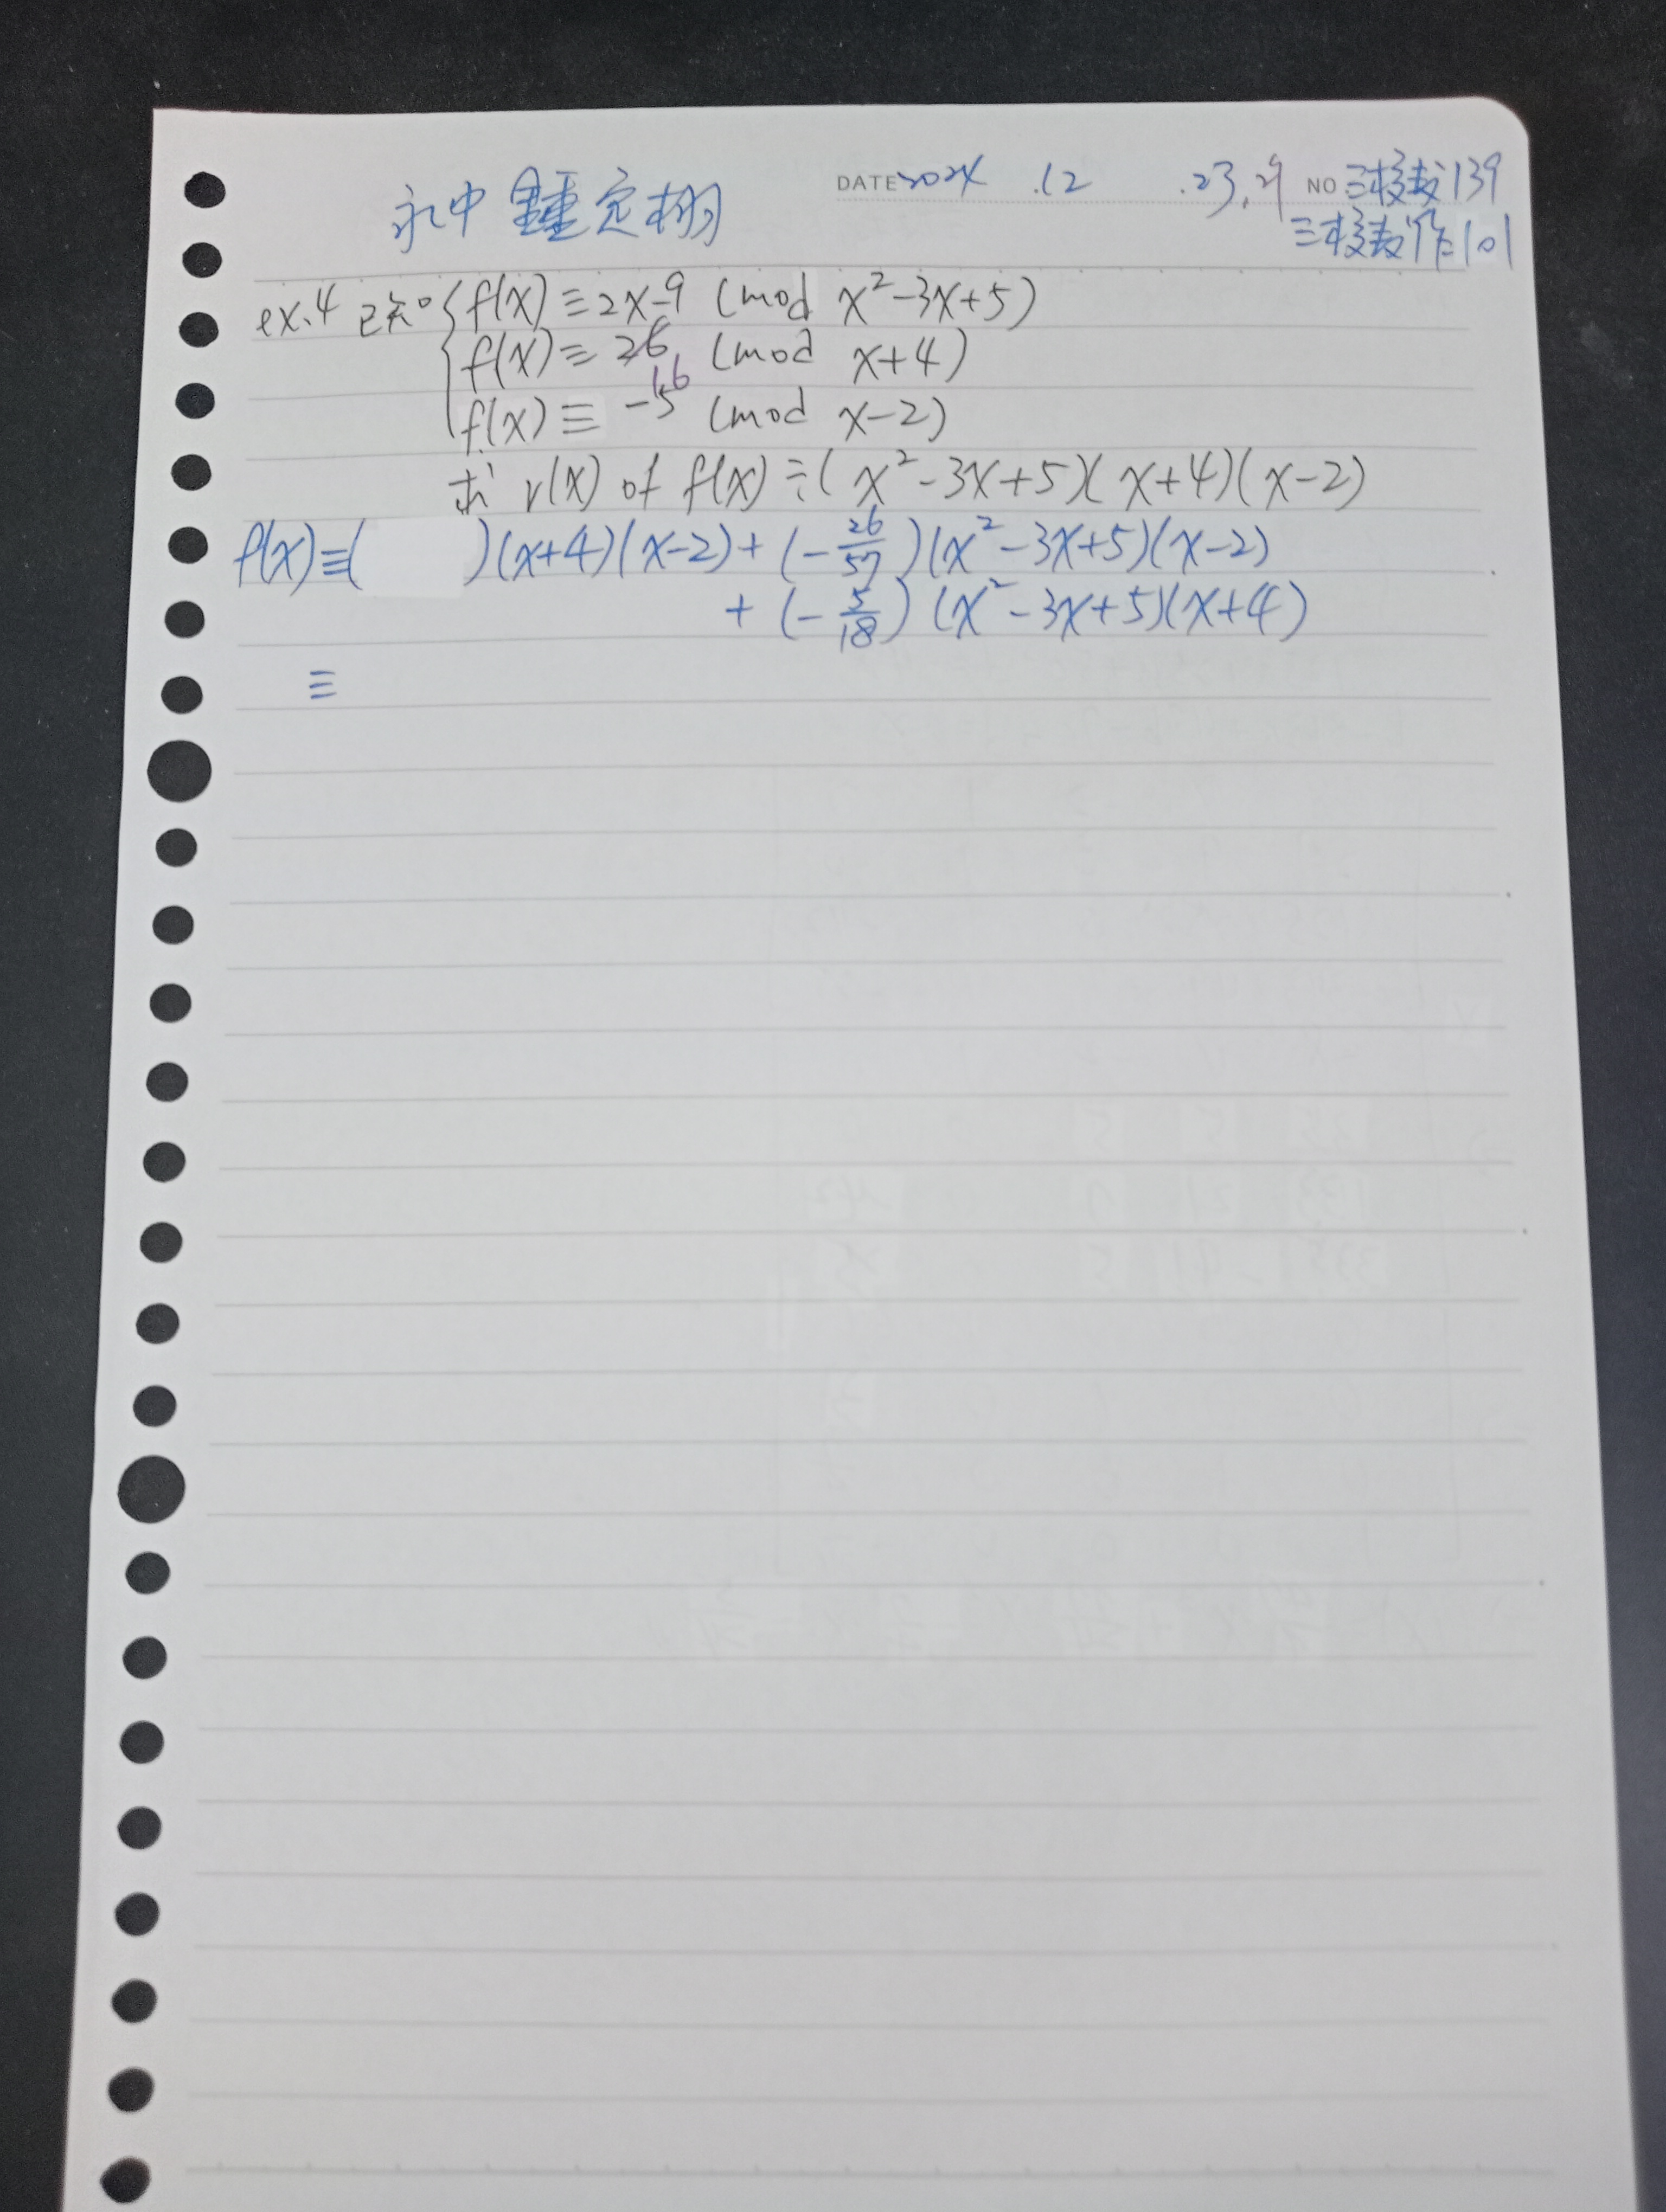 永中 鍾定栩
DATE 2024 .12 .23.刂 NO 三校教139
三校教作101
ex.4 已知 { f(x)≡2x-9 (mod x²-3x+5)
f(x)≡ 26 (mod x+4)
16
f(x)≡ -5 (mod x-2)
求 r(x) of f(x)÷(x²-3x+5)(x+4)(x-2)
f(x)≡( )(x+4)(x-2)+(-26/57)(x²-3x+5)(x-2)
+(-5/18)(x²-3x+5)(x+4)
≡